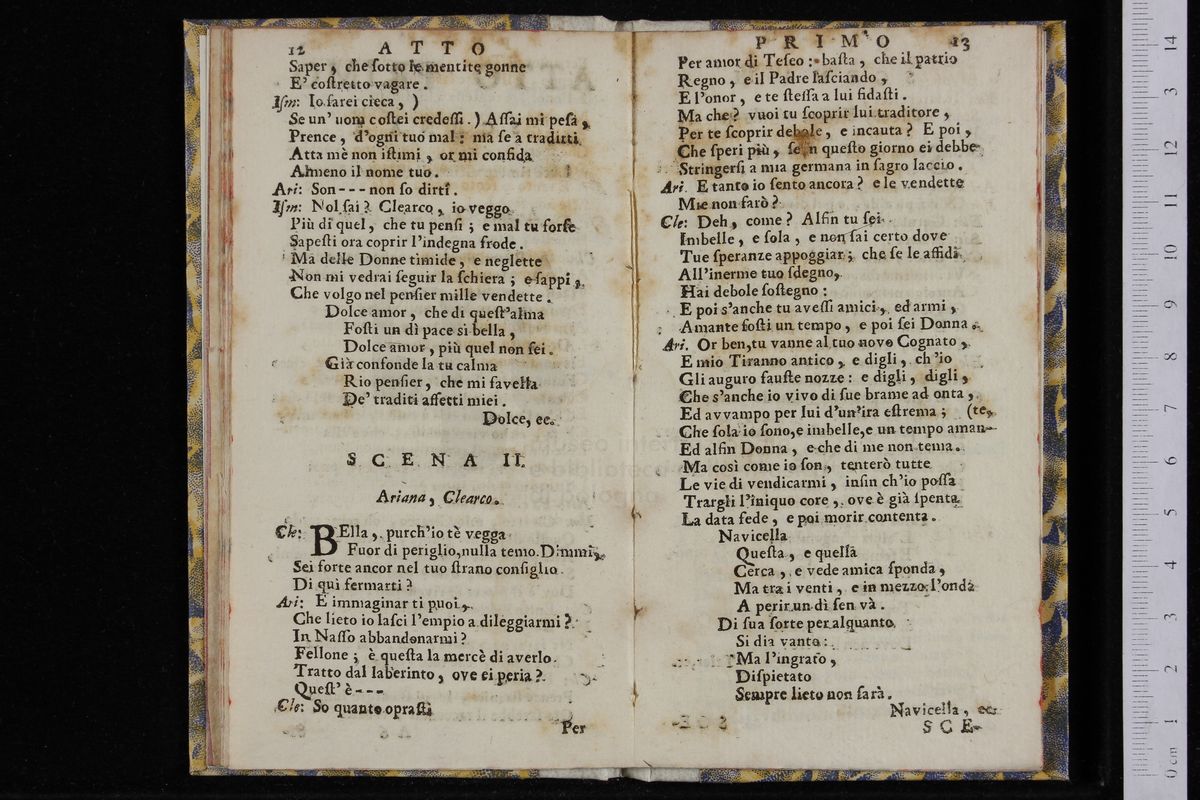 12 ATTO
Saper, che ſotto le mentite gonne
E' coſtretto vagare.
Iſm: Io ſarei cieca, )
Se un' uom coſtei credeſſi. ) Aſſai mi peſa,
Prence, d'ogni tuo mal: ma ſe a tradirti
Atta mè non iſtimi, or mi confida
Almeno il nome tuo.
Ari: Son--- non ſo dirti.
Iſm: Nol ſai? Clearco, io veggo
Più di quel, che tu penſi; e mal tu forſe
Sapeſti ora coprir l'indegna frode.
Ma delle Donne timide, e neglette
Non mi vedrai ſeguir la ſchiera; e ſappi,
Che volgo nel penſier mille vendette.
Dolce amor, che di queſt'alma
Foſti un dì pace sì bella,
Dolce amor, più quel non ſei.
Già confonde la tu calma
Rio penſier, che mi favella
De' traditi affetti miei.
Dolce, ec.
SCENA II.
Ariana, Clearco.
Cle: BElla, purch'io tè vegga
Fuor di periglio, nulla temo. Dimmi,
Sei forte ancor nel tuo ſtrano conſiglio
Di quì fermarti?
Ari: E immaginar ti puoi,
Che lieto io laſci l'empio a dileggiarmi?
In Naſſo abbandonarmi?
Fellone; è queſta la mercè di averlo
Tratto dal laberinto, ove ei peria?
Queſt' è---
Cle: So quanto opraſti
Per
PRIMO 13
Per amor di Teſeo: baſta, che il patrio
Regno, e il Padre laſciando,
E l'onor, e te ſteſſa a lui fidaſti.
Ma che? vuoi tu ſcoprir lui traditore,
Per te ſcoprir debole, e incauta? E poi,
Che ſperi più, ſe in queſto giorno ei debbe
Stringerſi a mia germana in ſagro laccio.
Ari. E tanto io ſento ancora? e le vendette
Mie non farò?
Cle: Deh, come? Alfin tu ſei
Imbelle, e ſola, e non ſai certo dove
Tue ſperanze appoggiar; che ſe le affidi
All'inerme tuo ſdegno,
Hai debole ſoſtegno:
E poi s'anche tu aveſſi amici, ed armi,
Amante foſti un tempo, e poi ſei Donna.
Ari. Or ben, tu vanne al tuo novo Cognato,
E mio Tiranno antico, e digli, ch'io
Gli auguro fauſte nozze: e digli, digli,
Che s'anche io vivo di ſue brame ad onta,
Ed avvampo per lui d'un'ira eſtrema; (te,
Che ſola io ſono, e imbelle, e un tempo aman-
Ed alfin Donna, e che di me non tema.
Ma così come io ſon, tenterò tutte
Le vie di vendicarmi, inſin ch'io poſſa
Trargli l'iniquo core, ove è già ſpenta
La data fede, e poi morir contenta.
Navicella
Queſta, e quella
Cerca, e vede amica ſponda,
Ma tra i venti, e in mezzo l'onda
A perir un dì ſen và.
Di ſua ſorte per alquanto
Si dia vanto:
Ma l'ingrato,
Diſpietato
Sempre lieto non ſarà.
Navicella, ec.
SCE-